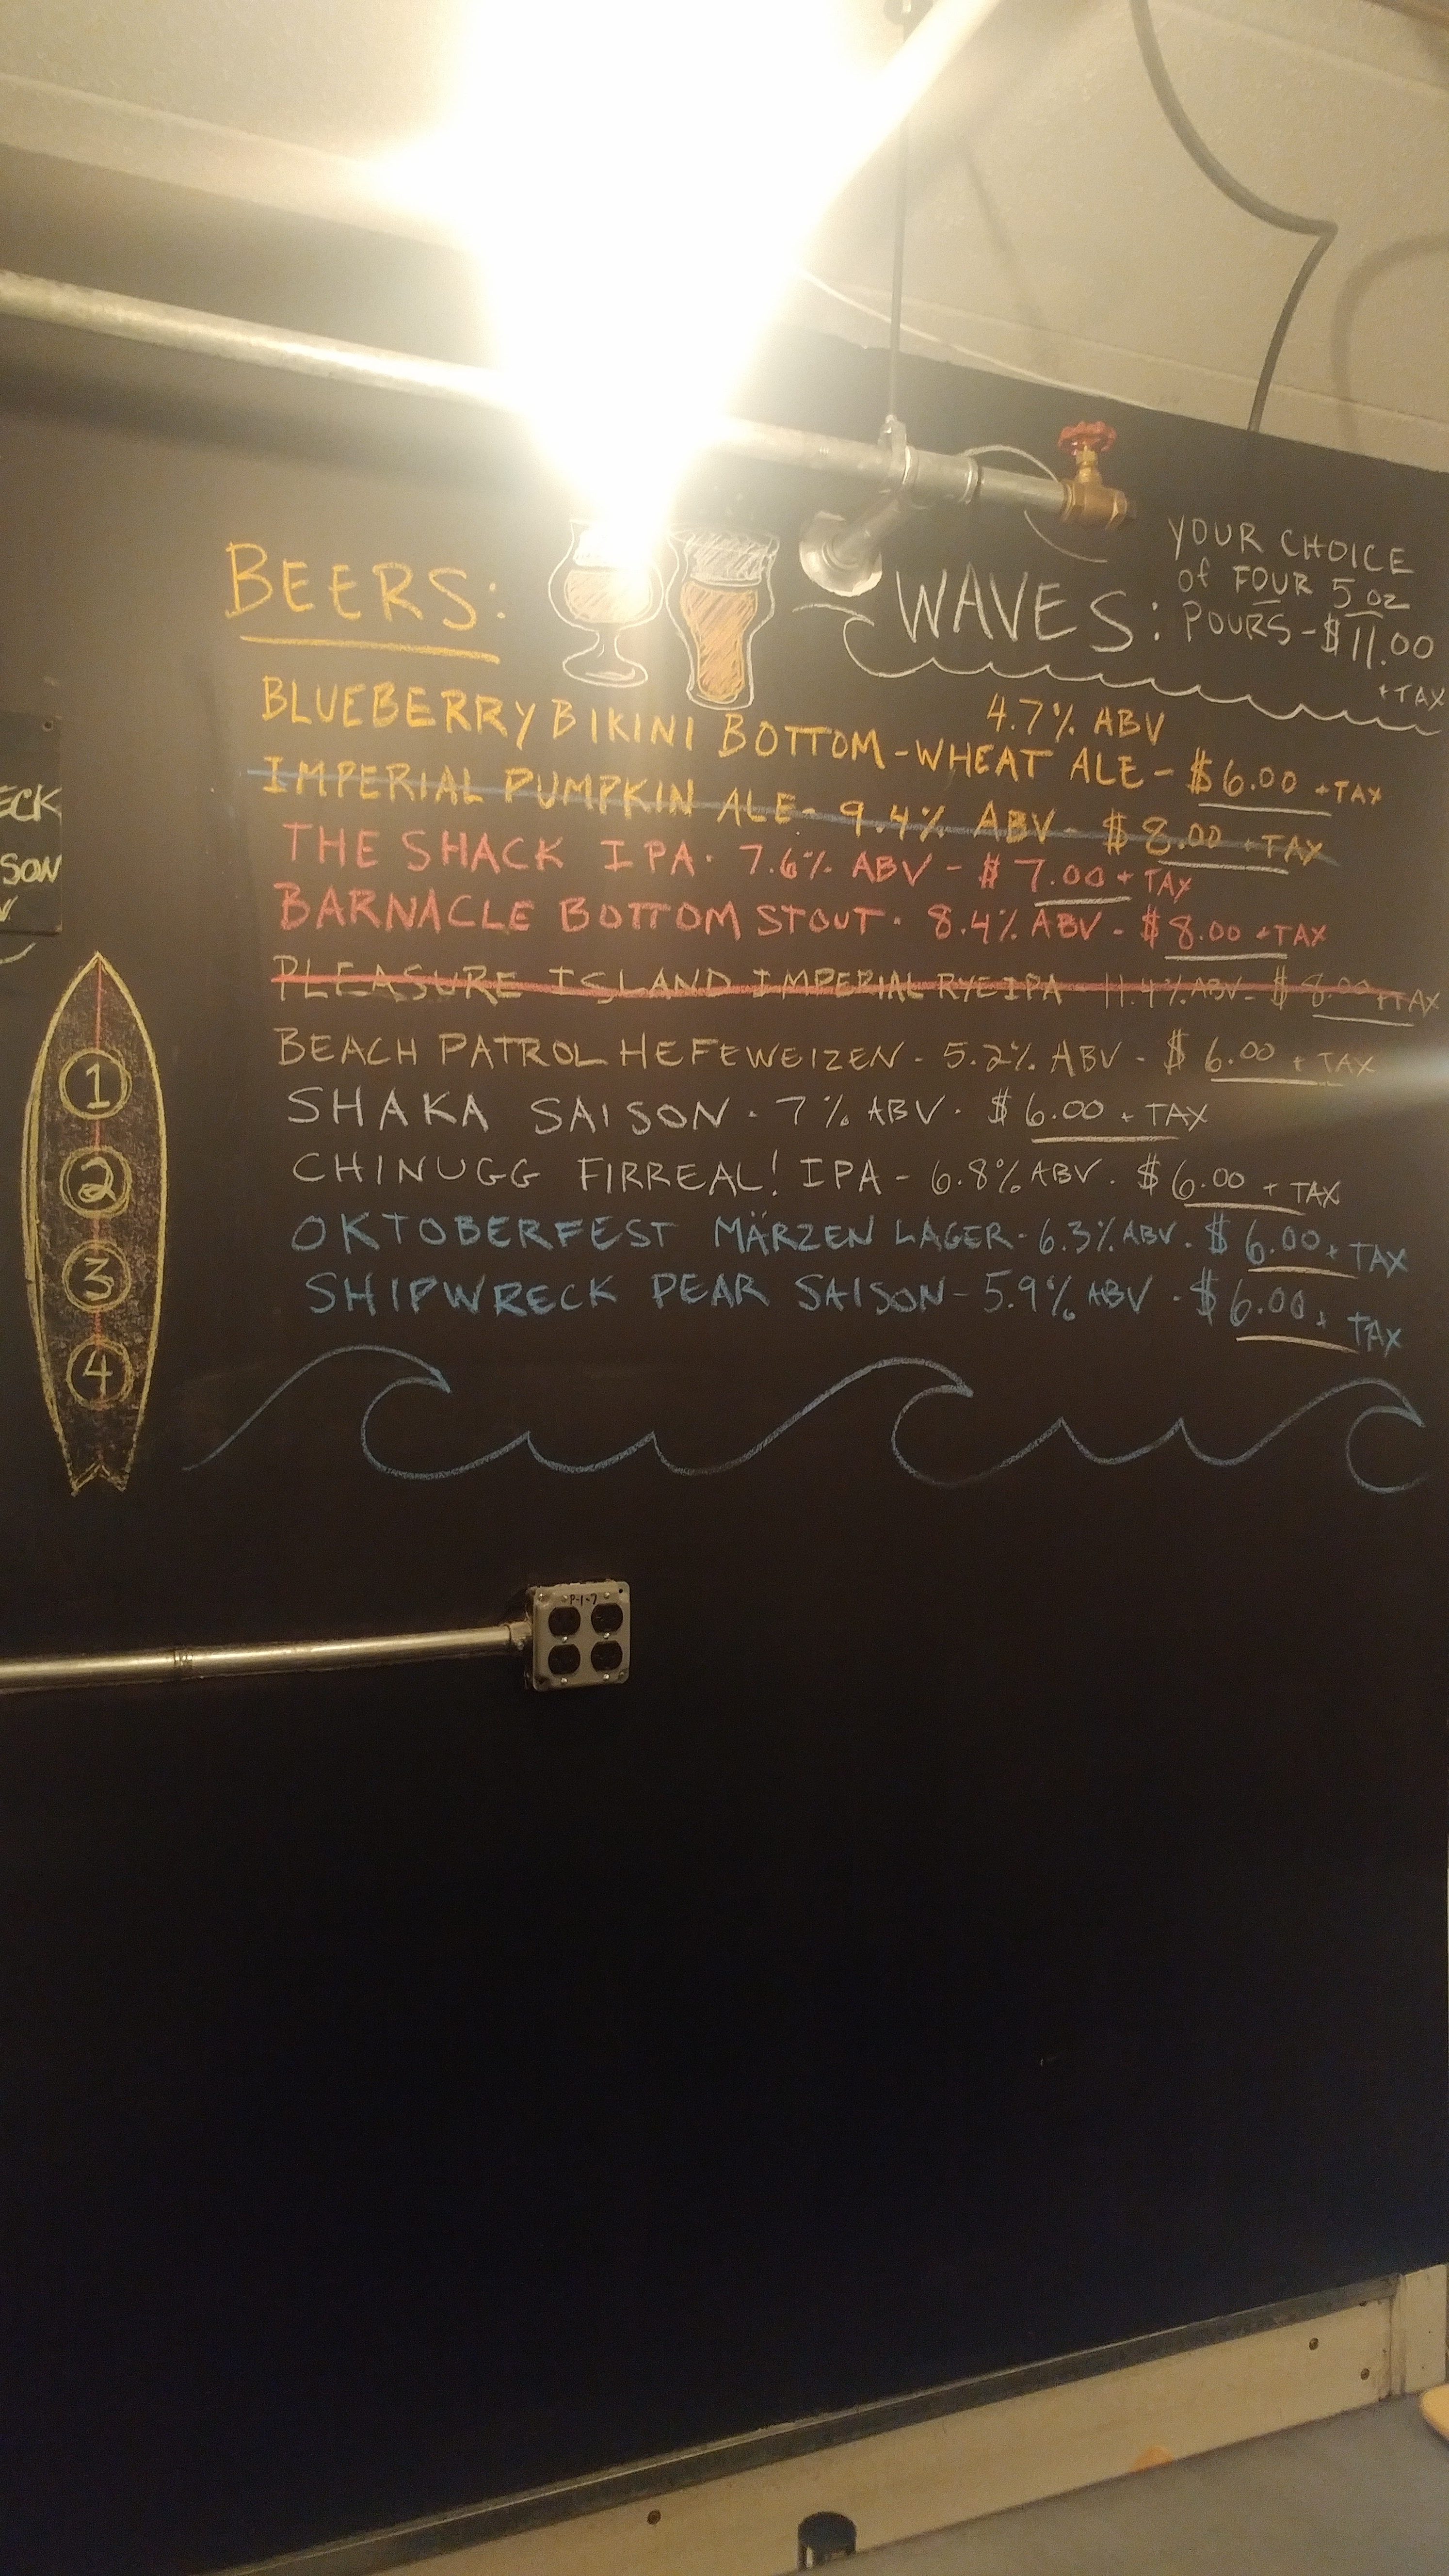 BEERS:
WAVES:
YOUR CHOICE
of FOUR 5 oz
POURS - $11.00
+TAX
4.7% ABV
BLUEBERRY BIKINI BOTTOM - WHEAT ALE - $6.00 +TAX
IMPERIAL PUMPKIN ALE - 9.4% ABV - $8.00 +TAX
THE SHACK IPA · 7.6% ABV - $7.00 + TAX
BARNACLE BOTTOM STOUT · 8.4% ABV - $8.00 +TAX
PLEASURE ISLAND IMPERIAL RYE IPA 11.4% ABV - $8.00 +TAX
BEACH PATROL HEFEWEIZEN - 5.2% ABV - $6.00 + TAX
SHAKA SAISON · 7% ABV · $6.00 + TAX
CHINUGG FIRREAL! IPA - 6.8% ABV · $6.00 + TAX
OKTOBERFEST MÄRZEN LAGER - 6.3% ABV · $6.00 + TAX
SHIPWRECK PEAR SAISON - 5.9% ABV · $6.00 + TAX
ECK
SON
1
2
3
4
P-1-7